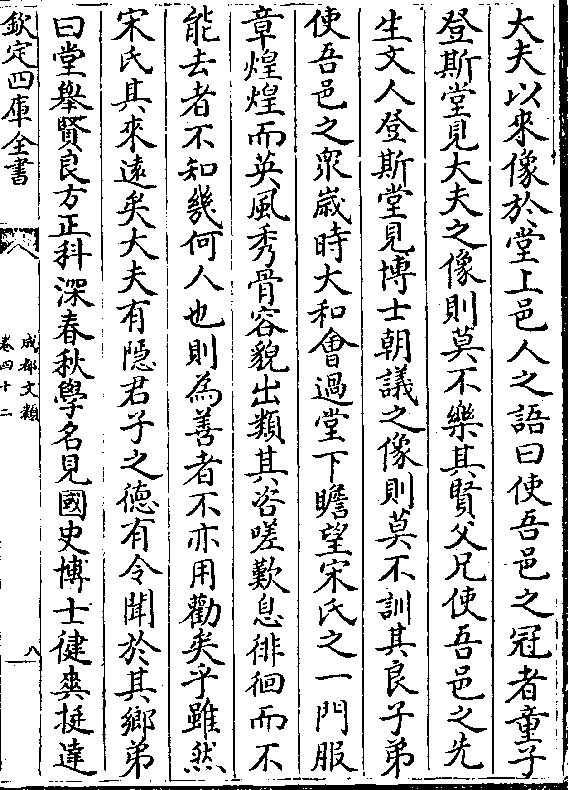 大夫以來像於堂上邑人之語曰使吾邑之冠者童子
登斯堂見大夫之像則莫不樂其賢父兄使吾邑之先
生文人登斯堂見博士朝議之像則莫不訓其良子弟
使吾邑之衆嵗時大和會過堂下瞻望宋氏之一門服
章煌煌而英風秀骨容貌出類其咨嗟歎息徘徊而不
能去者不知幾何人也則為善者不亦用勸矣乎雖然
宋氏其來逺矣大夫有隠君子之徳有令聞於其鄉弟
曰堂舉賢良方正科深春秋學名見國史博士健爽挺達
欽定四庫全書
成都文類
卷四十二
八